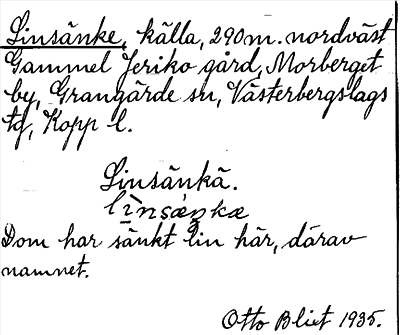 Linsänke, källa, 290 m. nordväst
Gammel Jeriko gård, Morberget
by, Grangärde sn, Västerbergslags
tg, Kopp l.
Linsänkä.
lìnsæŋkæ
Dom har sänkt lin här, därav
namnet.
Otto Blixt 1935.